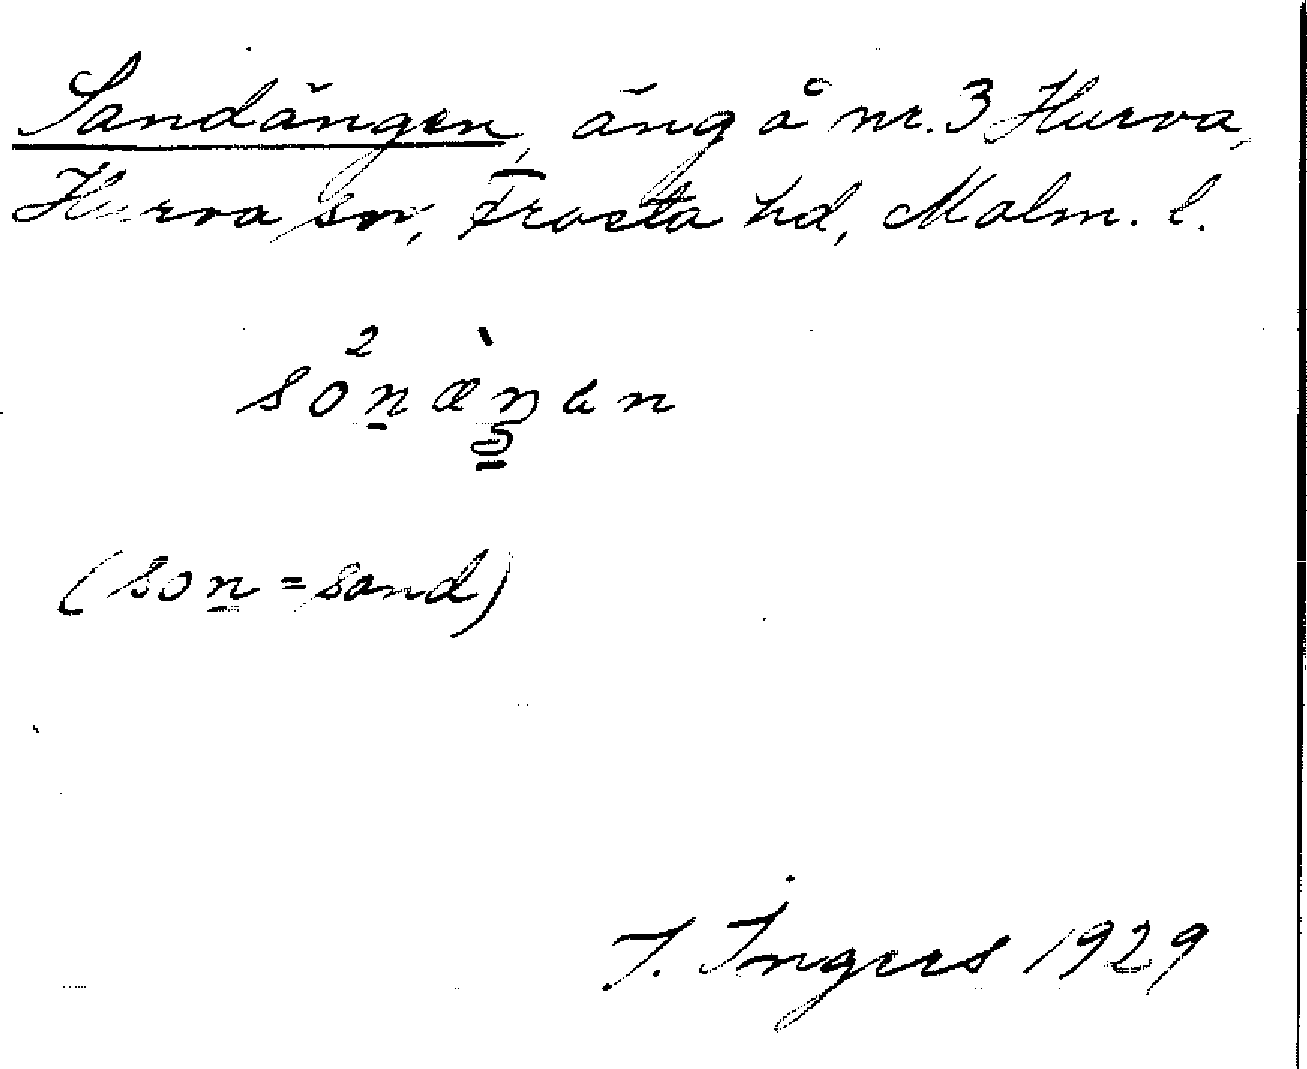 Sandängen, äng å nr. 3 Hurva,
Hurva sn, Frosta hd, Malm. l.
(son = sand)
I. Ingers 1929